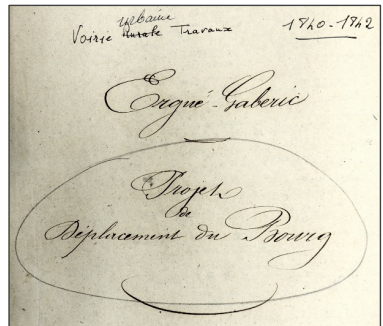 urbaine
Voirie Rurale Travaux
1840-1842
Ergué-Gaberic
Projet
de
Déplacement du Bourg